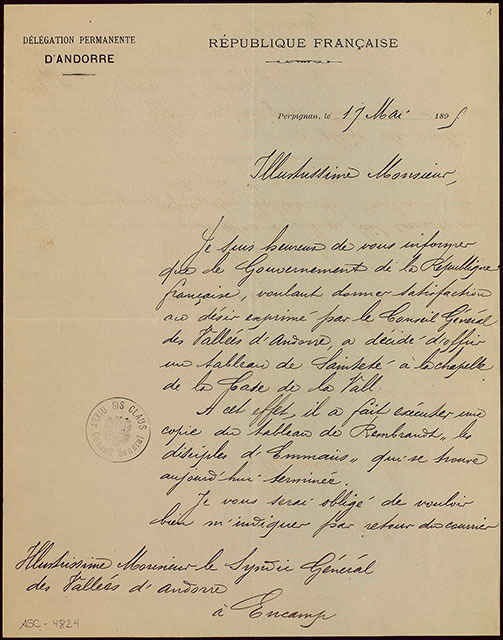 1
DÉLÉGATION PERMANENTE
D'ANDORRE
RÉPUBLIQUE FRANÇAISE
Perpignan, le 17 Mai 1895
Illustrissime Monsieur,
Je suis heureux de vous informer
que le Gouvernement de la République
française, voulant donner satisfaction
au désir exprimé par le Conseil Général
des Vallées d'Andorre, a décidé d'offrir
un tableau de Sainteté à la chapelle
de la Case de la Vall.
A cet effet, il a fait exécuter une
copie du tableau de Rembrandt "les
disciples d'Emmaüs" qui se trouve
aujourd'hui terminée.
Je vous serai obligé de vouloir
bien m'indiquer par retour du courrier
ARXIU SIS CLAUS
Consell General
Illustrissime Monsieur le Syndic Général
des Vallées d'Andorre
à Encamp
ASC-4824